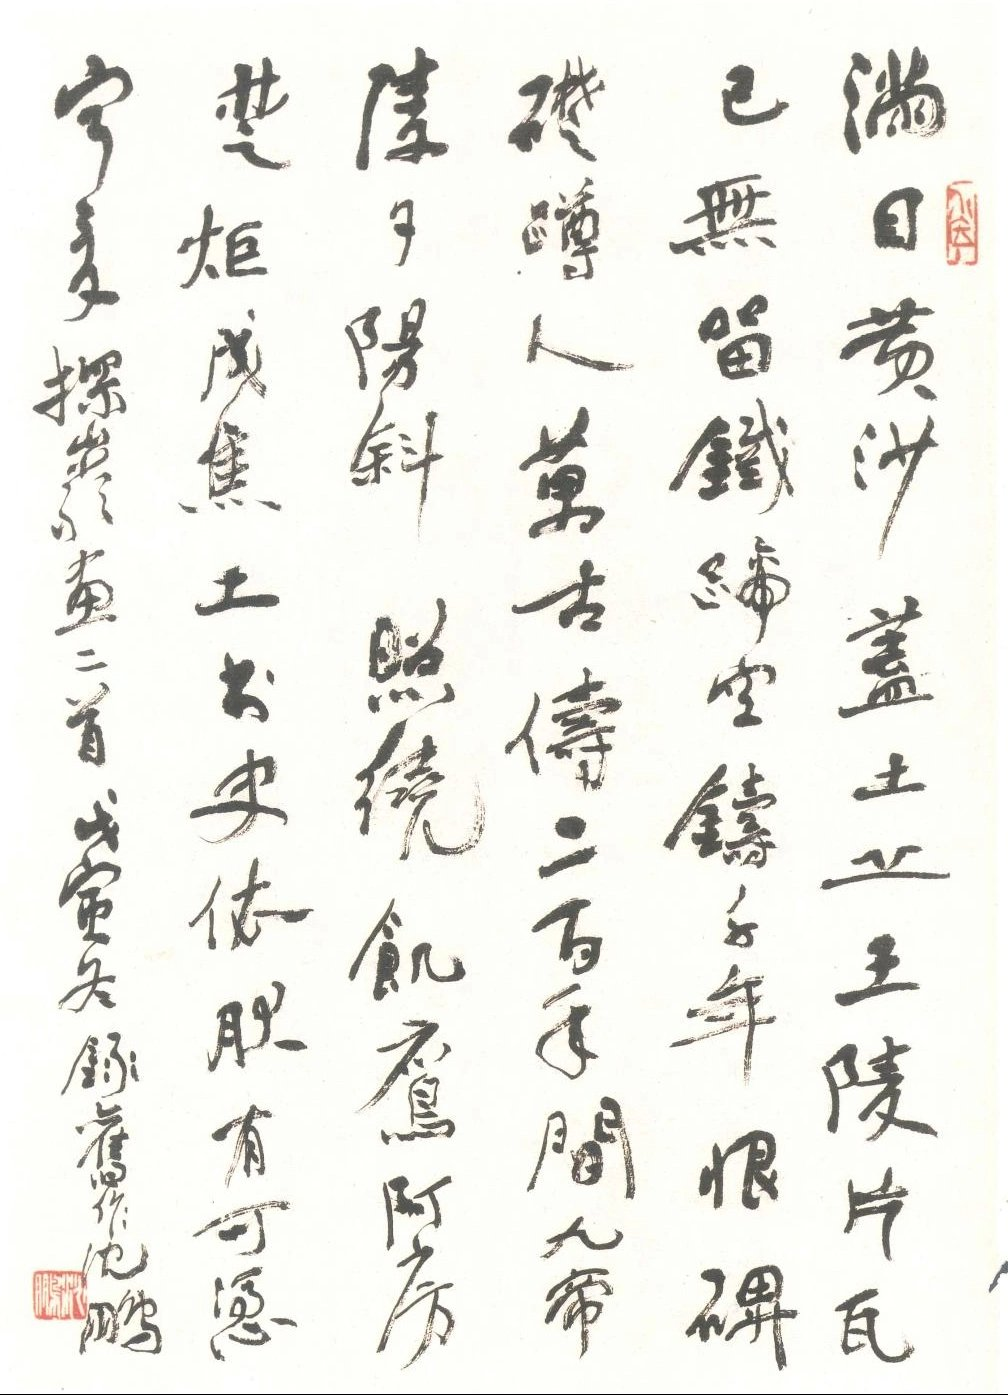 滿目黄沙蓋土丘王陵片瓦
已無留鐵蹄空鑄千年恨碑
礎蹲人萬古儔二百年間九帝
陵夕陽斜照繞飢鷹阿房
楚炬成焦土书史依然有可憑
寧夏探巖畫二首戊寅冬錄舊作沈鵬
沈鵬